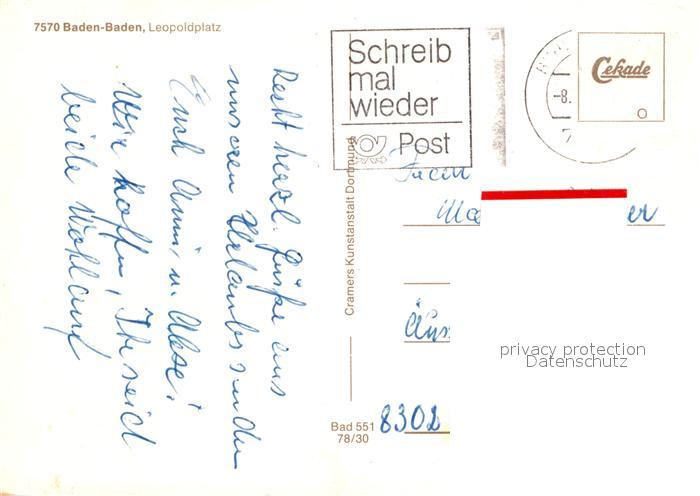 7570 Baden-Baden, Leopoldplatz
Recht herzl. Grüße aus
unserem Urlaub senden
Euch Anni u.
Wir hoffen, Ihr seid
beide Wohlauf
Schreib
mal
wieder
Post
-8.
Cekade
Cramers Kunstanstalt Dortmund
Bad 551
78/30
Frau
er
8302
privacy protection
Datenschutz